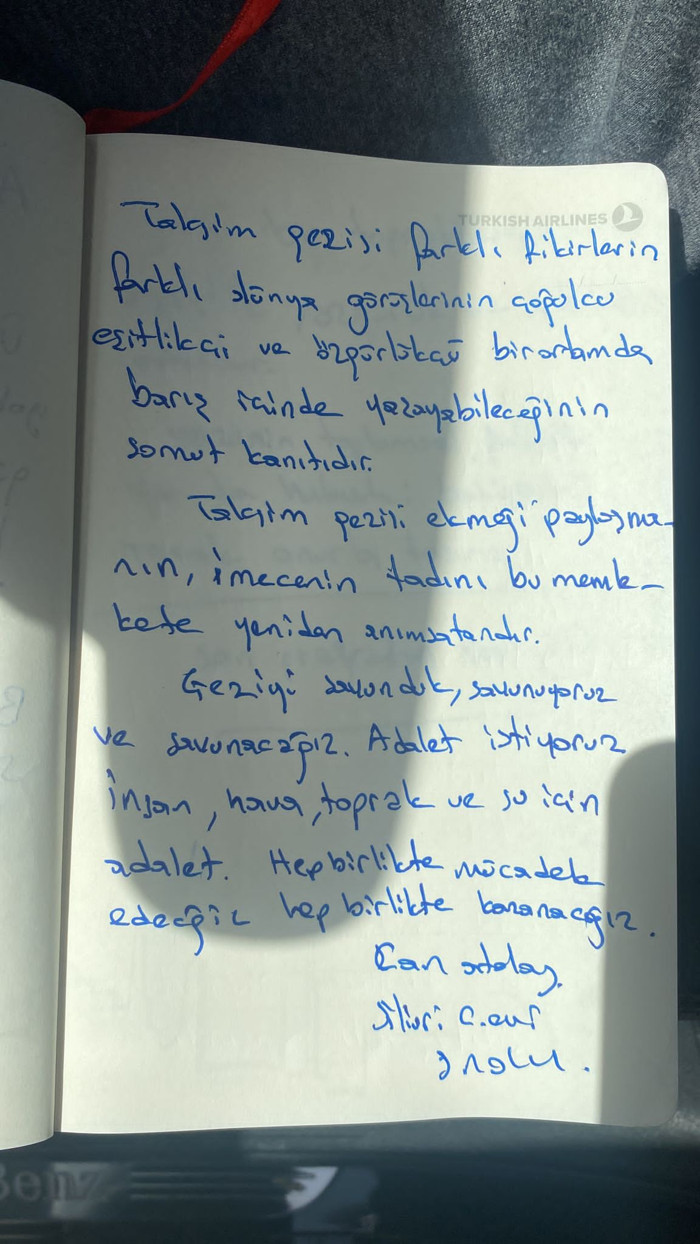 TURKISH AIRLINES
Taksim gezisi farklı fikirlerin
farklı dünya görüşlerinin çoğulcu
eşitlikçi ve özgürlükçü bir ortamda
barış içinde yaşayabileceğinin
somut kanıtıdır.
Taksim gezisi ekmeği paylaşma-
nın, imecenin tadını bu memle-
kete yeniden anımsatandır.
Geziyi savunduk, savunuyoruz
ve savunacağız. Adalet istiyoruz
İnsan, hava, toprak ve su için
adalet. Hep birlikte mücadele
edeceğiz hep birlikte kazanacağız.
Can Atalay
Silivri C.evi
önü
Benz